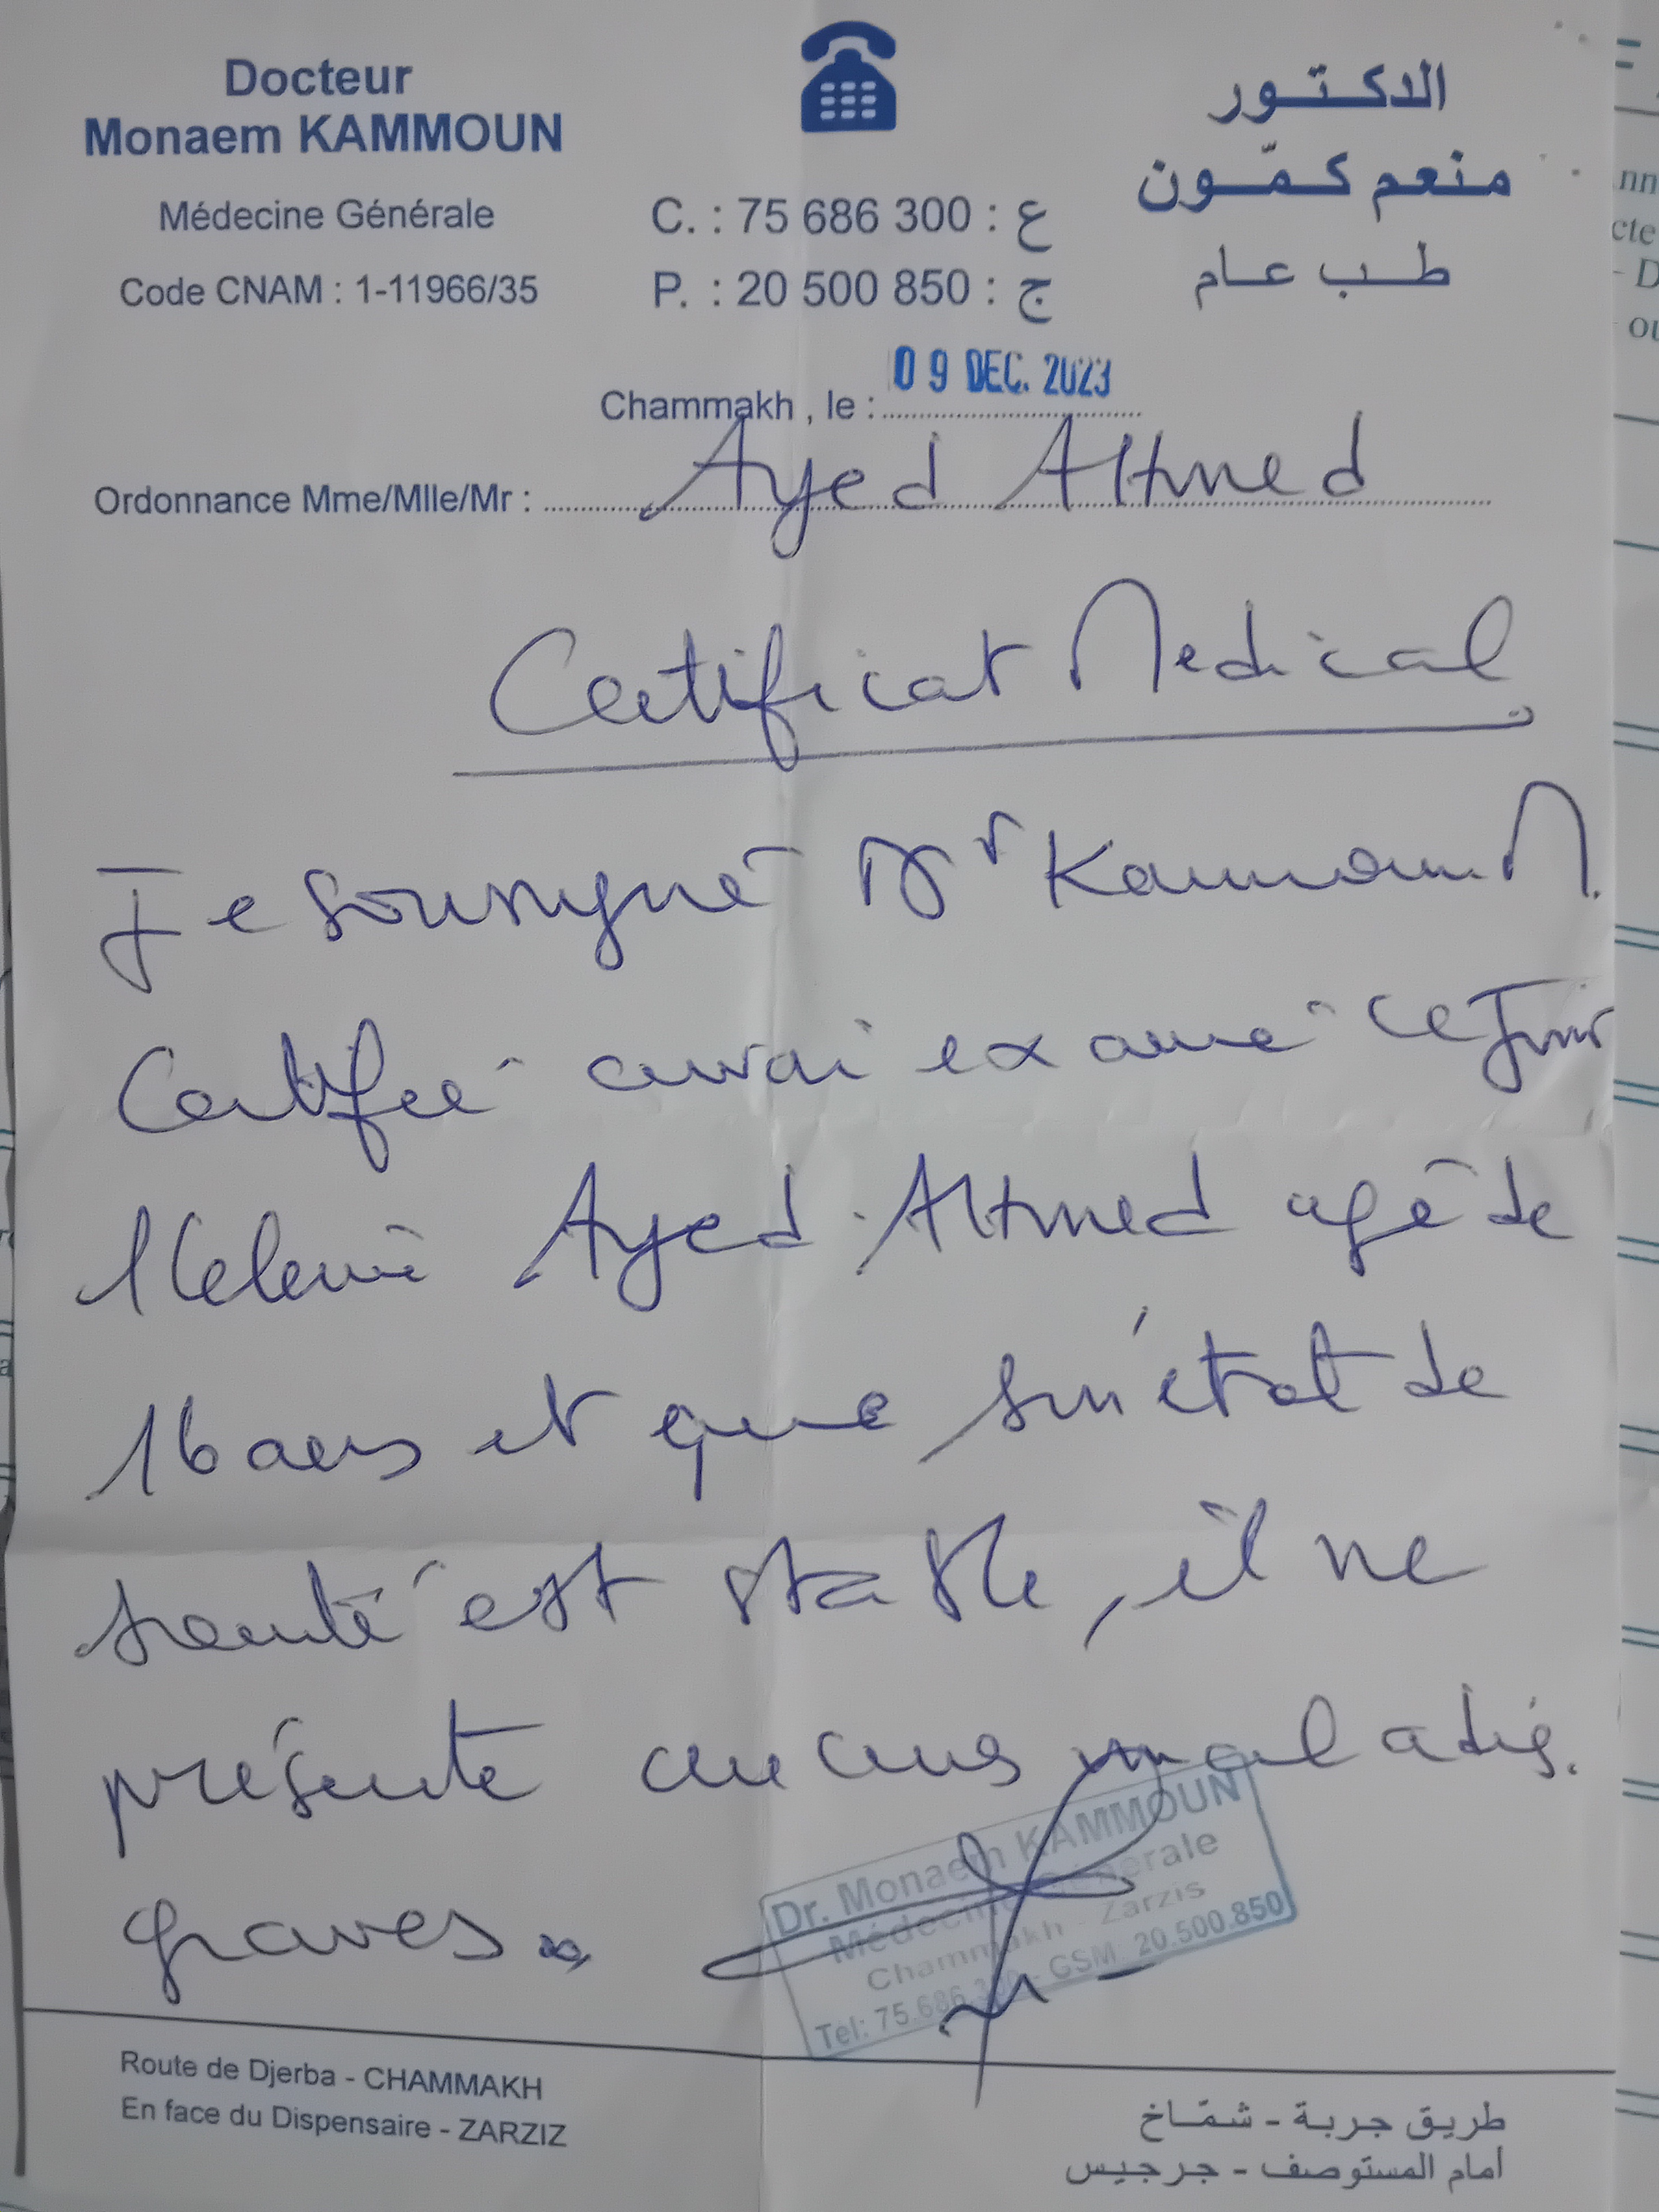 Docteur
Monaem KAMMOUN
Médecine Générale
Code CNAM : 1-11966/35
C. : 75 686 300 : ع
P. : 20 500 850 : ج
الدكتور
منعم كمّون
طب عام
Chammakh , le : 09 DEC. 2023
Ordonnance Mme/Mlle/Mr : Ayed Ahmed
Certificat Medical
Je soussigné Dr Kammoun M.
Certifié avoir examiné ce jour
l'élève Ayed Ahmed agé de
16 ans et que son état de
santé est stable, il ne
présente aucunes maladies.
graves.
Dr. Monaem KAMMOUN
Médecine Générale
Chammakh - Zarzis
Tel: 75.686.300 - GSM: 20.500.850
Route de Djerba - CHAMMAKH
En face du Dispensaire - ZARZIZ
طريق جربة - شمّاخ
أمام المستوصف - جرجيس